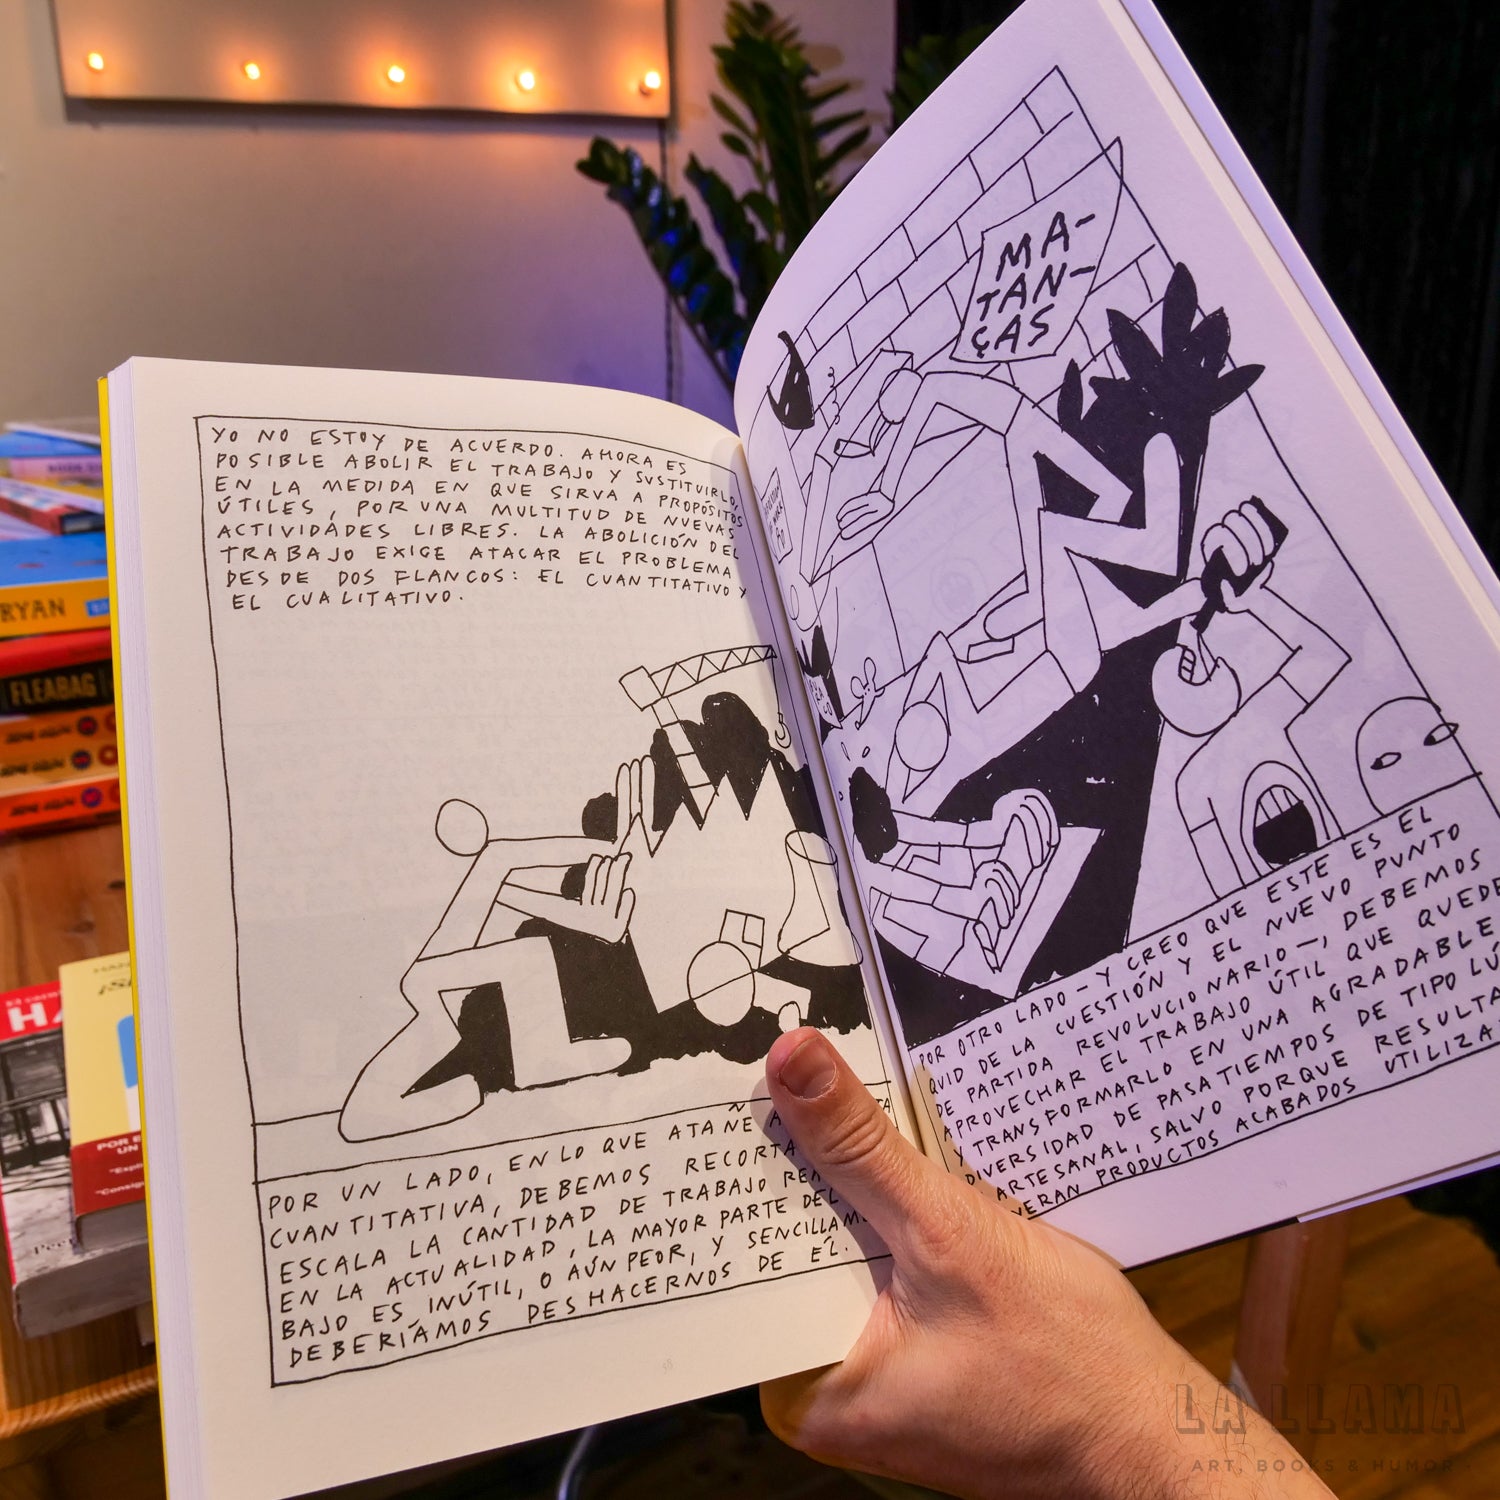 YO NO ESTOY DE ACUERDO. AHORA ES
POSIBLE ABOLIR EL TRABAJO Y SUSTITUIRLO,
EN LA MEDIDA EN QUE SIRVA A PROPÓSITOS
ÚTILES, POR UNA MULTITUD DE NUEVAS
ACTIVIDADES LIBRES. LA ABOLICIÓN DEL
TRABAJO EXIGE ATACAR EL PROBLEMA
DESDE DOS FLANCOS: EL CUANTITATIVO Y
EL CUALITATIVO.
POR UN LADO, EN LO QUE ATAÑE A
CUANTITATIVA, DEBEMOS RECORTA
ESCALA LA CANTIDAD DE TRABAJO
EN LA ACTUALIDAD, LA MAYOR PARTE DEL
BAJO ES INÚTIL, O AÚN PEOR, Y SENCILLAM
DEBERÍAMOS DESHACERNOS DE ÉL.
58
MA-
TAN-
ÇAS
POR OTRO LADO — Y CREO QUE ESTE ES EL
QUID DE LA CUESTIÓN Y EL NUEVO PUNTO
DE PARTIDA REVOLUCIONARIO —, DEBEMOS
APROVECHAR EL TRABAJO ÚTIL QUE QUEDE
Y TRANSFORMARLO EN UNA AGRADABLE
DIVERSIDAD DE PASATIEMPOS DE TIPO LÚ
ARTESANAL, SALVO PORQUE RESULTA
VERAN PRODUCTOS ACABADOS UTILIZA
RYAN
FLEABAG
HA
POR E
UN
LA LLAMA
ART, BOOKS & HUMOR